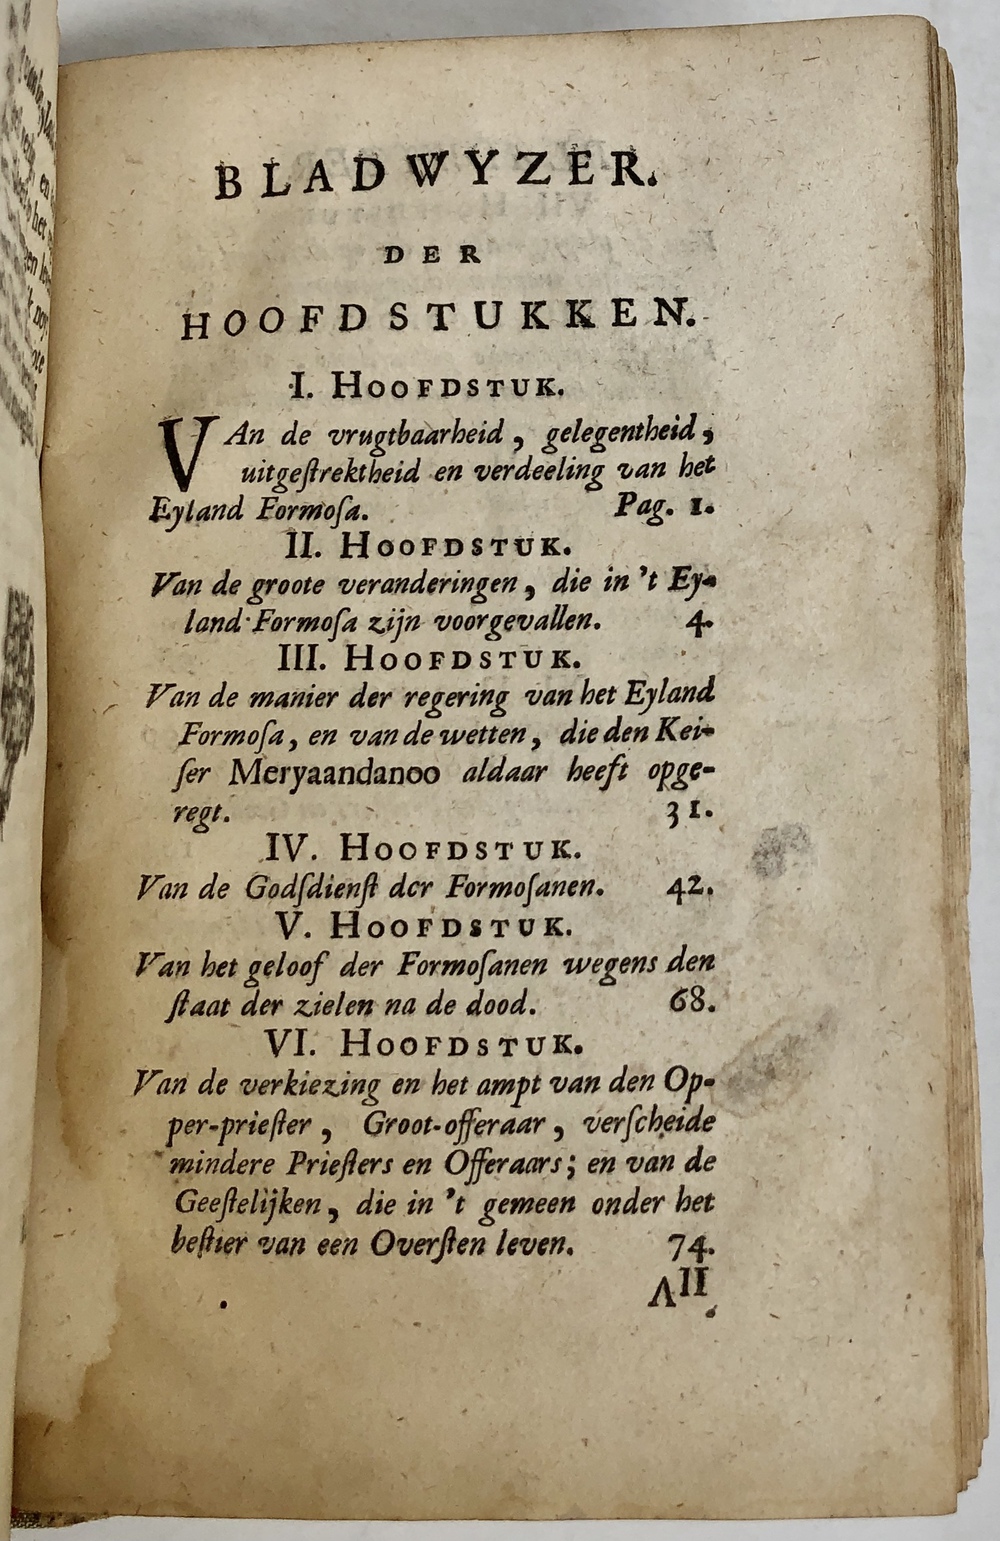 BLADWYZER.
DER
HOOFDSTUKKEN.
I. HOOFDSTUK.
VAn de vrugtbaarheid, gelegentheid,
uitgeſtrektheid en verdeeling van het
Eyland Formoſa. Pag. 1.
II. HOOFDSTUK.
Van de groote veranderingen, die in 't Ey-
land Formoſa zijn voorgevallen. 4.
III. HOOFDSTUK.
Van de manier der regering van het Eyland
Formoſa, en van de wetten, die den Kei-
ſer Meryaandanoo aldaar heeft opge-
regt. 31.
IV. HOOFDSTUK.
Van de Godſdienſt der Formoſanen. 42.
V. HOOFDSTUK.
Van het geloof der Formoſanen wegens den
ſtaat der zielen na de dood. 68.
VI. HOOFDSTUK.
Van de verkiezing en het ampt van den Op-
per-prieſter, Groot-offeraar, verſcheide
mindere Prieſters en Offeraars; en van de
Geeſtelijken, die in 't gemeen onder het
beſtier van een Overſten leven. 74.
VII